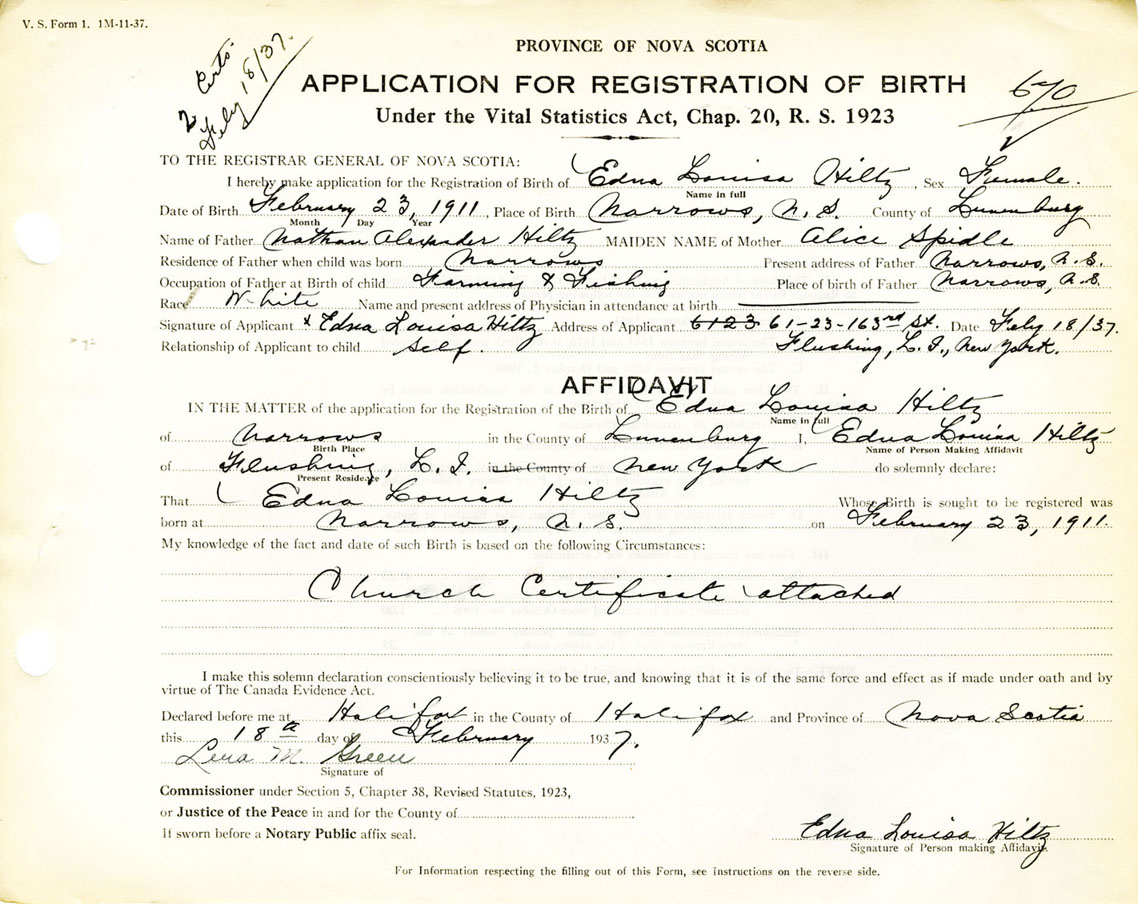 V. S. Form 1. 1M-11-37.
2 Certs.
Feby 18/37.
PROVINCE OF NOVA SCOTIA
APPLICATION FOR REGISTRATION OF BIRTH
670
Under the Vital Statistics Act, Chap. 20, R. S. 1923
TO THE REGISTRAR GENERAL OF NOVA SCOTIA:
I hereby make application for the Registration of Birth of Edna Louisa Hiltz, Sex Female.
Name in full
Date of Birth February 23, 1911, Place of Birth Narrows, N. S. County of Lunenburg
Month Day Year
Name of Father Nathan Alexander Hiltz MAIDEN NAME of Mother Alice Spidle
Residence of Father when child was born Narrows Present address of Father Narrows, N. S.
Occupation of Father at Birth of child Farming & Fishing Place of birth of Father Narrows, N. S.
Race White Name and present address of Physician in attendance at birth
Signature of Applicant x Edna Louisa Hiltz Address of Applicant 6123 61-23-163rd St. Date Feby 18/37.
Relationship of Applicant to child Self. Flushing, L. I., New York.
AFFIDAVIT
IN THE MATTER of the application for the Registration of the Birth of Edna Louisa Hiltz
Name in full
of Narrows in the County of Lunenburg I, Edna Louisa Hiltz
Birth Place Name of Person Making Affidavit
of Flushing, L. I. in the County of New York do solemnly declare:
Present Residence
That Edna Louisa Hiltz Whose Birth is sought to be registered was
born at Narrows, N. S. on February 23, 1911.
My knowledge of the fact and date of such Birth is based on the following Circumstances:
Church Certificate attached
I make this solemn declaration conscientiously believing it to be true, and knowing that it is of the same force and effect as if made under oath and by
virtue of The Canada Evidence Act.
Declared before me at Halifax in the County of Halifax and Province of Nova Scotia
this 18th day of February 1937.
Lena M. Green
Signature of
Commissioner under Section 5, Chapter 38, Revised Statutes, 1923,
or Justice of the Peace in and for the County of
If sworn before a Notary Public affix seal.
Edna Louisa Hiltz
Signature of Person making Affidavit
For Information respecting the filling out of this Form, see Instructions on the reverse side.